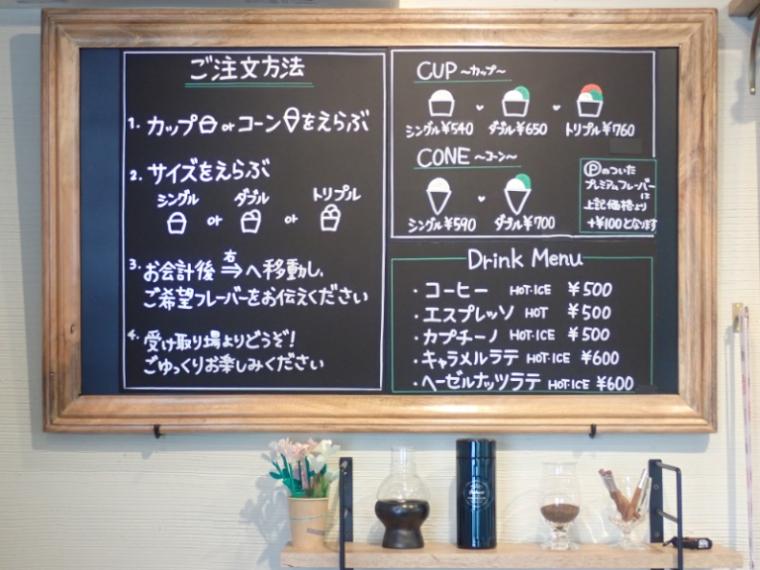 ご注文方法
1. カップ or コーン をえらぶ
2. サイズをえらぶ
シングル ダブル トリプル
or or
3. お会計後 右⇒へ移動し、
ご希望フレーバーをお伝えください
4. 受け取り場よりどうぞ!
ごゆっくりお楽しみください
CUP 〜カップ〜
シングル¥540 ダブル¥650 トリプル¥760
CONE 〜コーン〜
シングル¥590 ダブル¥700
Ⓟのついた
プレミアムフレーバー
は
上記価格より
+¥100となります
Drink Menu
・コーヒー HOT・ICE ¥500
・エスプレッソ HOT ¥500
・カプチーノ HOT・ICE ¥500
・キャラメルラテ HOT・ICE ¥600
・ヘーゼルナッツラテ HOT・ICE ¥600